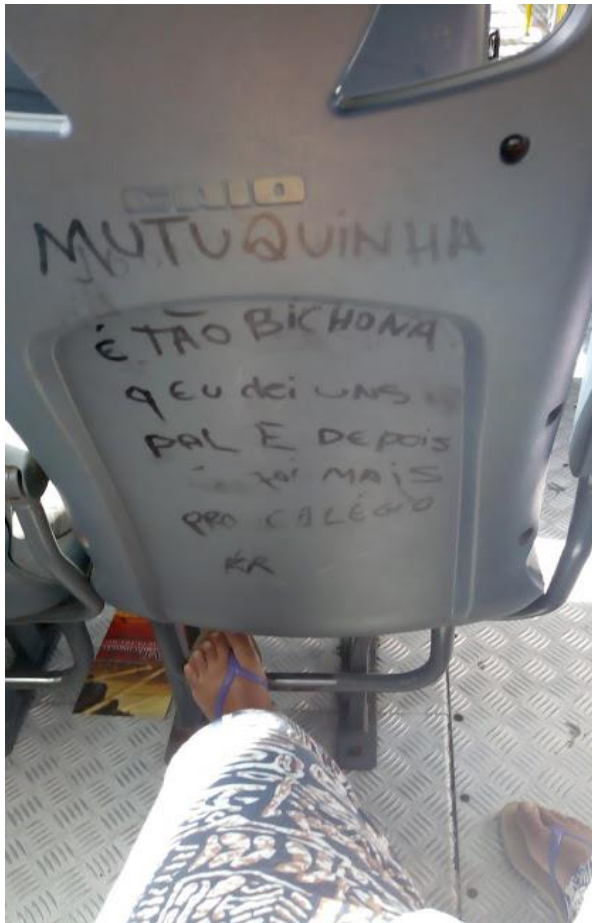 CAIO
MUTUQUINHA
É TÃO BICHONA
q EU dei UNS
PAL E DEPOIS
foi MAIS
PRO CALÉGIO
KR